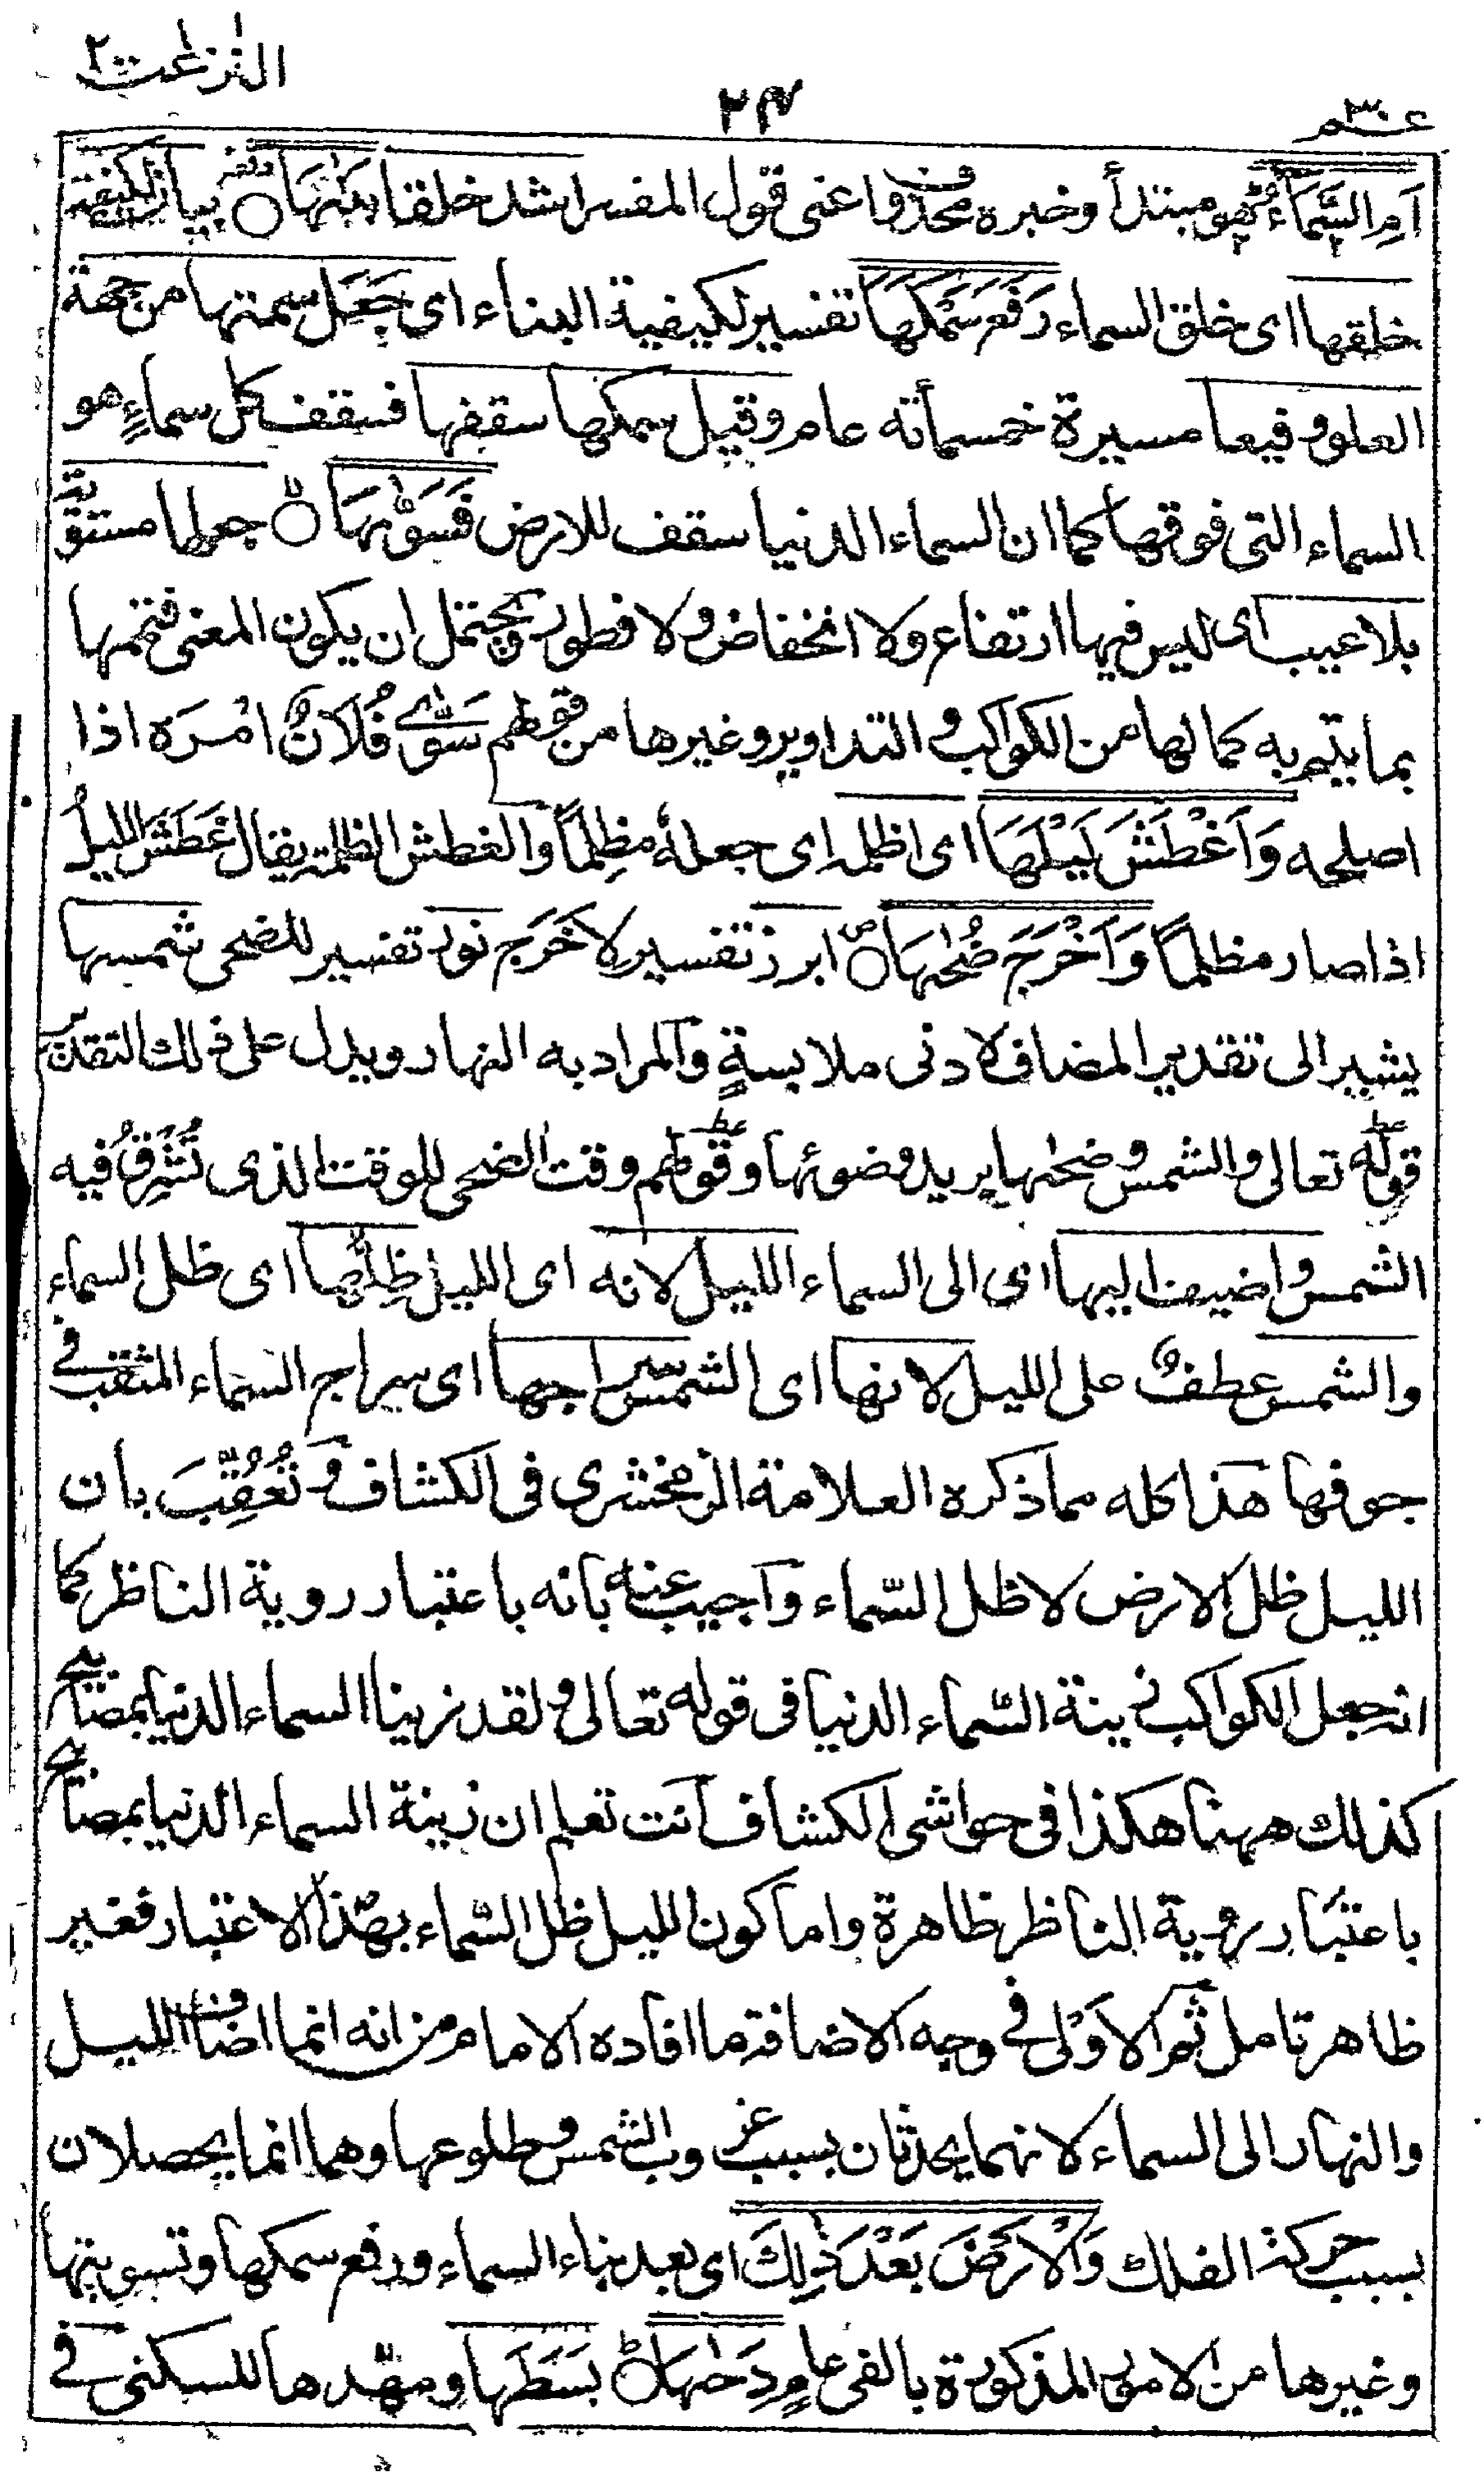 النزعت ٢
٢٤
عم ٣٠
اَمِ السَّمَآءُ هو مبتدأ وخبره محذوف اعنى قول المفسر اشد خلقا بَنٰىهَا بيان لكيفية
خلقها اى خلق السماء رَفَعَ سَمْكَهَا تفسير لكيفية البناء اى جعل سمتها من جهة
العلو رفيعا مسيرة خمسمأته عام وقيل سمكها سقفها فسقف كل سماءٍ هو
السماء التى فوقها كما ان السماء الدنيا سقف للارض فَسَوّٰىهَا جعلها مستوية
بلا عيب اى ليس فيها ارتفاع ولا انخفاض ولا فطور ويحتمل ان يكون المعنى فتممها
بما يتم به كمالها من الكواكب والتداوير وغيرها من قولهم سَوّٰى فُلَانٌ امْرَه اذا
اصلحه وَاَغْطَشَ لَيْلَهَا اى اظلم اى جعلهٗ مظلِمًا والغطش الظلمة يقال غَطَشَ الليلُ
اذا صار مظلمًا وَاَخْرَجَ ضُحٰىهَا ابرز تفسير لاَخرَج نور تفسير للضحى شمسها
يشير الى تقدير المضاف لادنى ملابسةٍ والمراد به النهار ويدل على ذلك التقدير
قوله تعالى والشمس وضحٰىها يريد وضوئها وقولهم وقت الضحى للوقت الذى تُشْرِقُ فيه
الشمس واضيف اليها اى الى السماء الليل لانه اى الليل ظِلُّها اى ظل السماء
والشمس عطفٌ على الليل لانها اى الشمس سراجها اى سراج السماء المثقب فى
جوفها هذا كله مما ذكره العلامة الزمخشرى فى الكشاف وتُعُقِّبَ بان
الليل ظل الارض لا ظل السّماء وأجيب عنه بانه باعتبار روية الناظر كما
انه جعل الكواكب زينة السّماء الدنيا فى قوله تعالى ولقد زينا السماء الدنيا بمصابيح
كذلك ههنا هكذا فى حواشى الكشاف انت تعلم ان زينة السماء الدنيا بمصابيح
باعتبار روية الناظر ظاهرة واما كون الليل ظل السّماء بهذا الاعتبار فغير
ظاهر تامل ثم الاَوْلى فى وجه الاضافة ما افاده الامام من انه انما اضاف الليل
والنهار الى السماء لانهما يحدثان بسبب غروب الشمس وطلوعها وهما انما يحصلان
بسبب حركة الفلك وَالْاَرْضَ بَعْدَ ذٰلِكَ اى بعد بناء السماء ورفع سمكها وتسويتها
وغيرها من الامور المذكورة بالفى عامٍ دَحٰىهَا بَسَطَها ومهّدها للسكنى فى